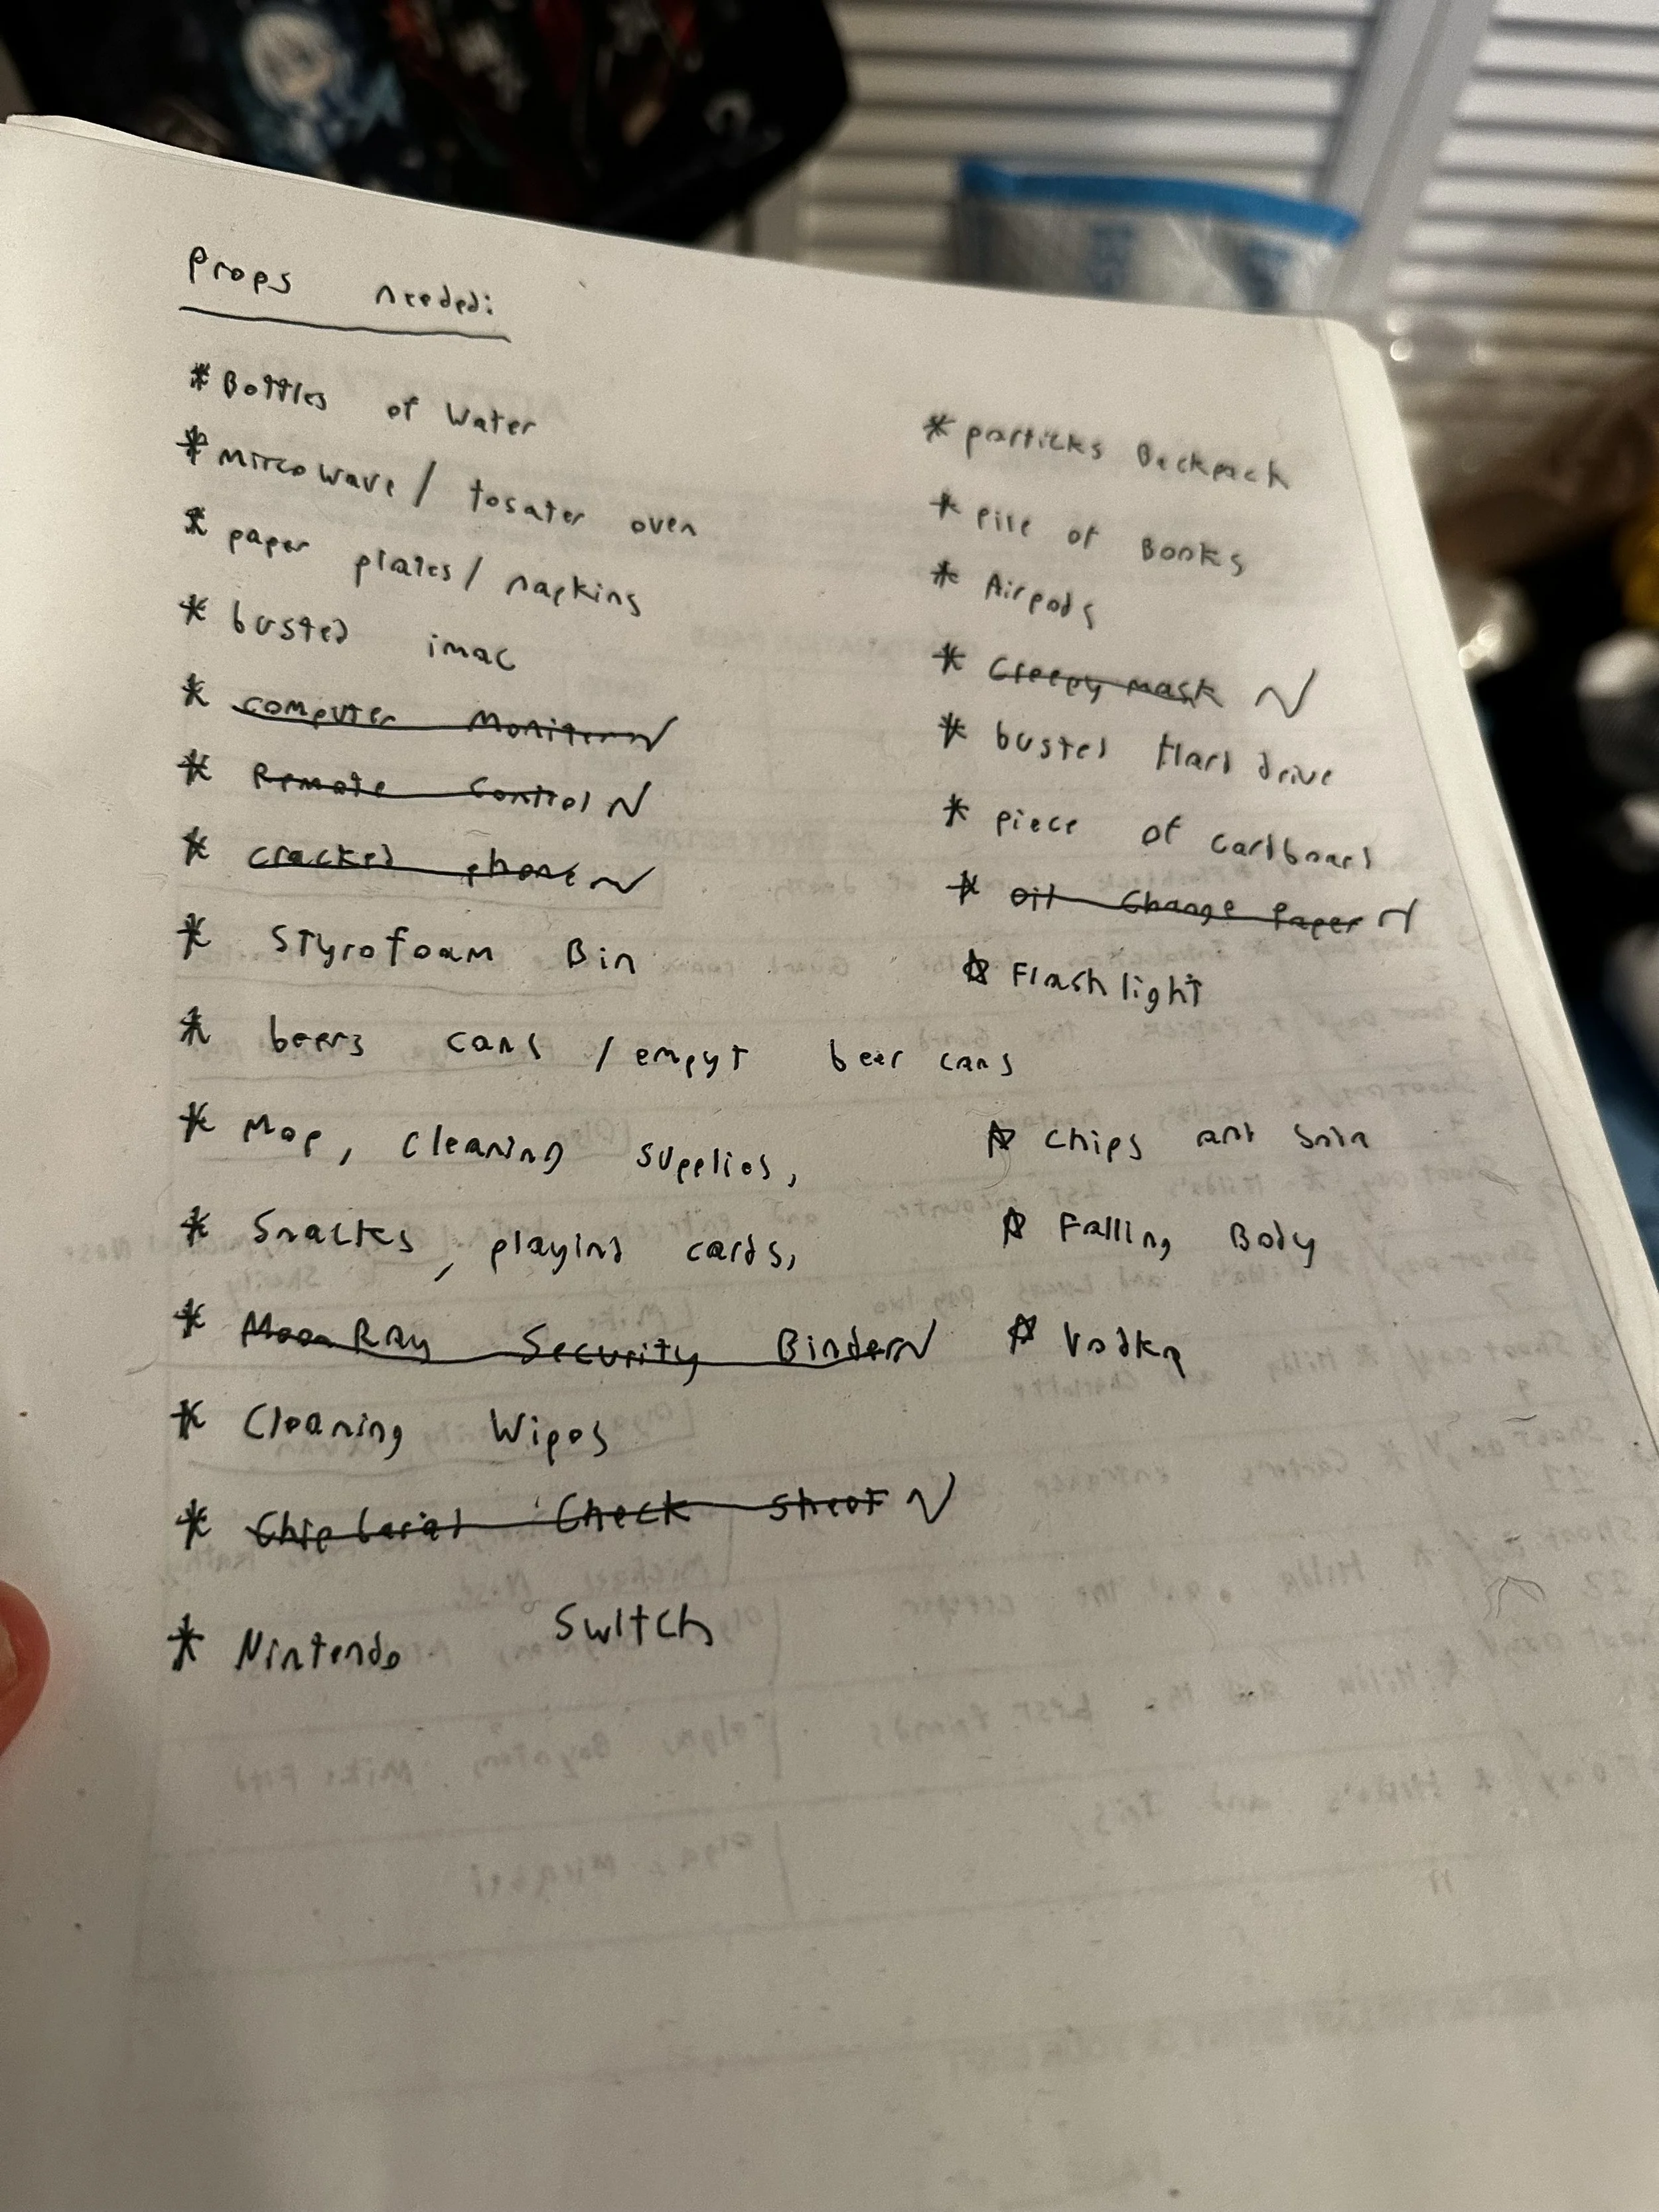 Props needed:
* Bottles of Water
* Mircowave / tosater oven
* paper plates / napkins
* busted imac
* computer Monitor
* Remote Control
* cracked phone
* Styrofoam Bin
* beers cans / empyt beer cans
* Mop, cleaning supplies,
* Snacks, playing cards,
* Moon Ray Security Binder
* Cleaning Wipes
* Check Sheet
* Nintendo Switch
* particks Backpack
* Pile of Books
* Airpods
* Creepy mask
* busted Hard drive
* piece of cardboard
* Oil Change Paper
* Flashlight
* Chips and
* Falling Body
* Vodka